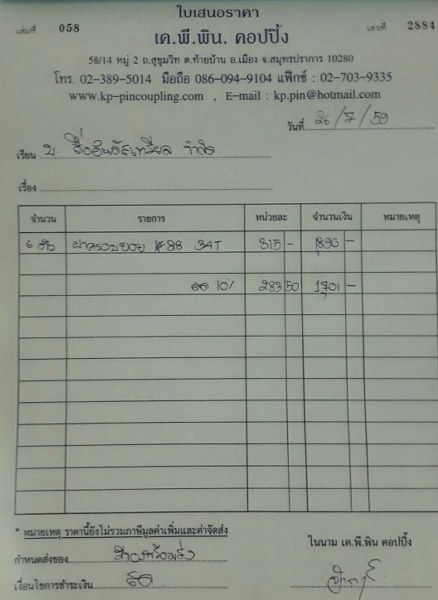 ใบเสนอราคา
เล่มที่ 058 เลขที่ 2884
เค.พี.พิน. คอปปิ้ง
58/14 หมู่ 2 ถ.สุขุมวิท ต.ท้ายบ้าน อ.เมือง จ.สมุทรปราการ 10280
โทร. 02-389-5014 มือถือ 086-094-9104 แฟ็กซ์ : 02-703-9335
www.kp-pincoupling.com , E-mail : kp.pin@hotmail.com
วันที่ 26/7/59
เรียน บ. จำกัด
เรื่อง
จำนวน รายการ หน่วยละ จำนวนเงิน หมายเหตุ
6 ฝาครอบยอย #88 34T 315 - 1890 -
ลด 10% 283 50 1701 -
* หมายเหตุ ราคานี้ยังไม่รวมภาษีมูลค่าเพิ่มและค่าจัดส่ง
กำหนดส่งของ
ในนาม เค.พี.พิน คอปปิ้ง
เงื่อนไขการชำระเงิน